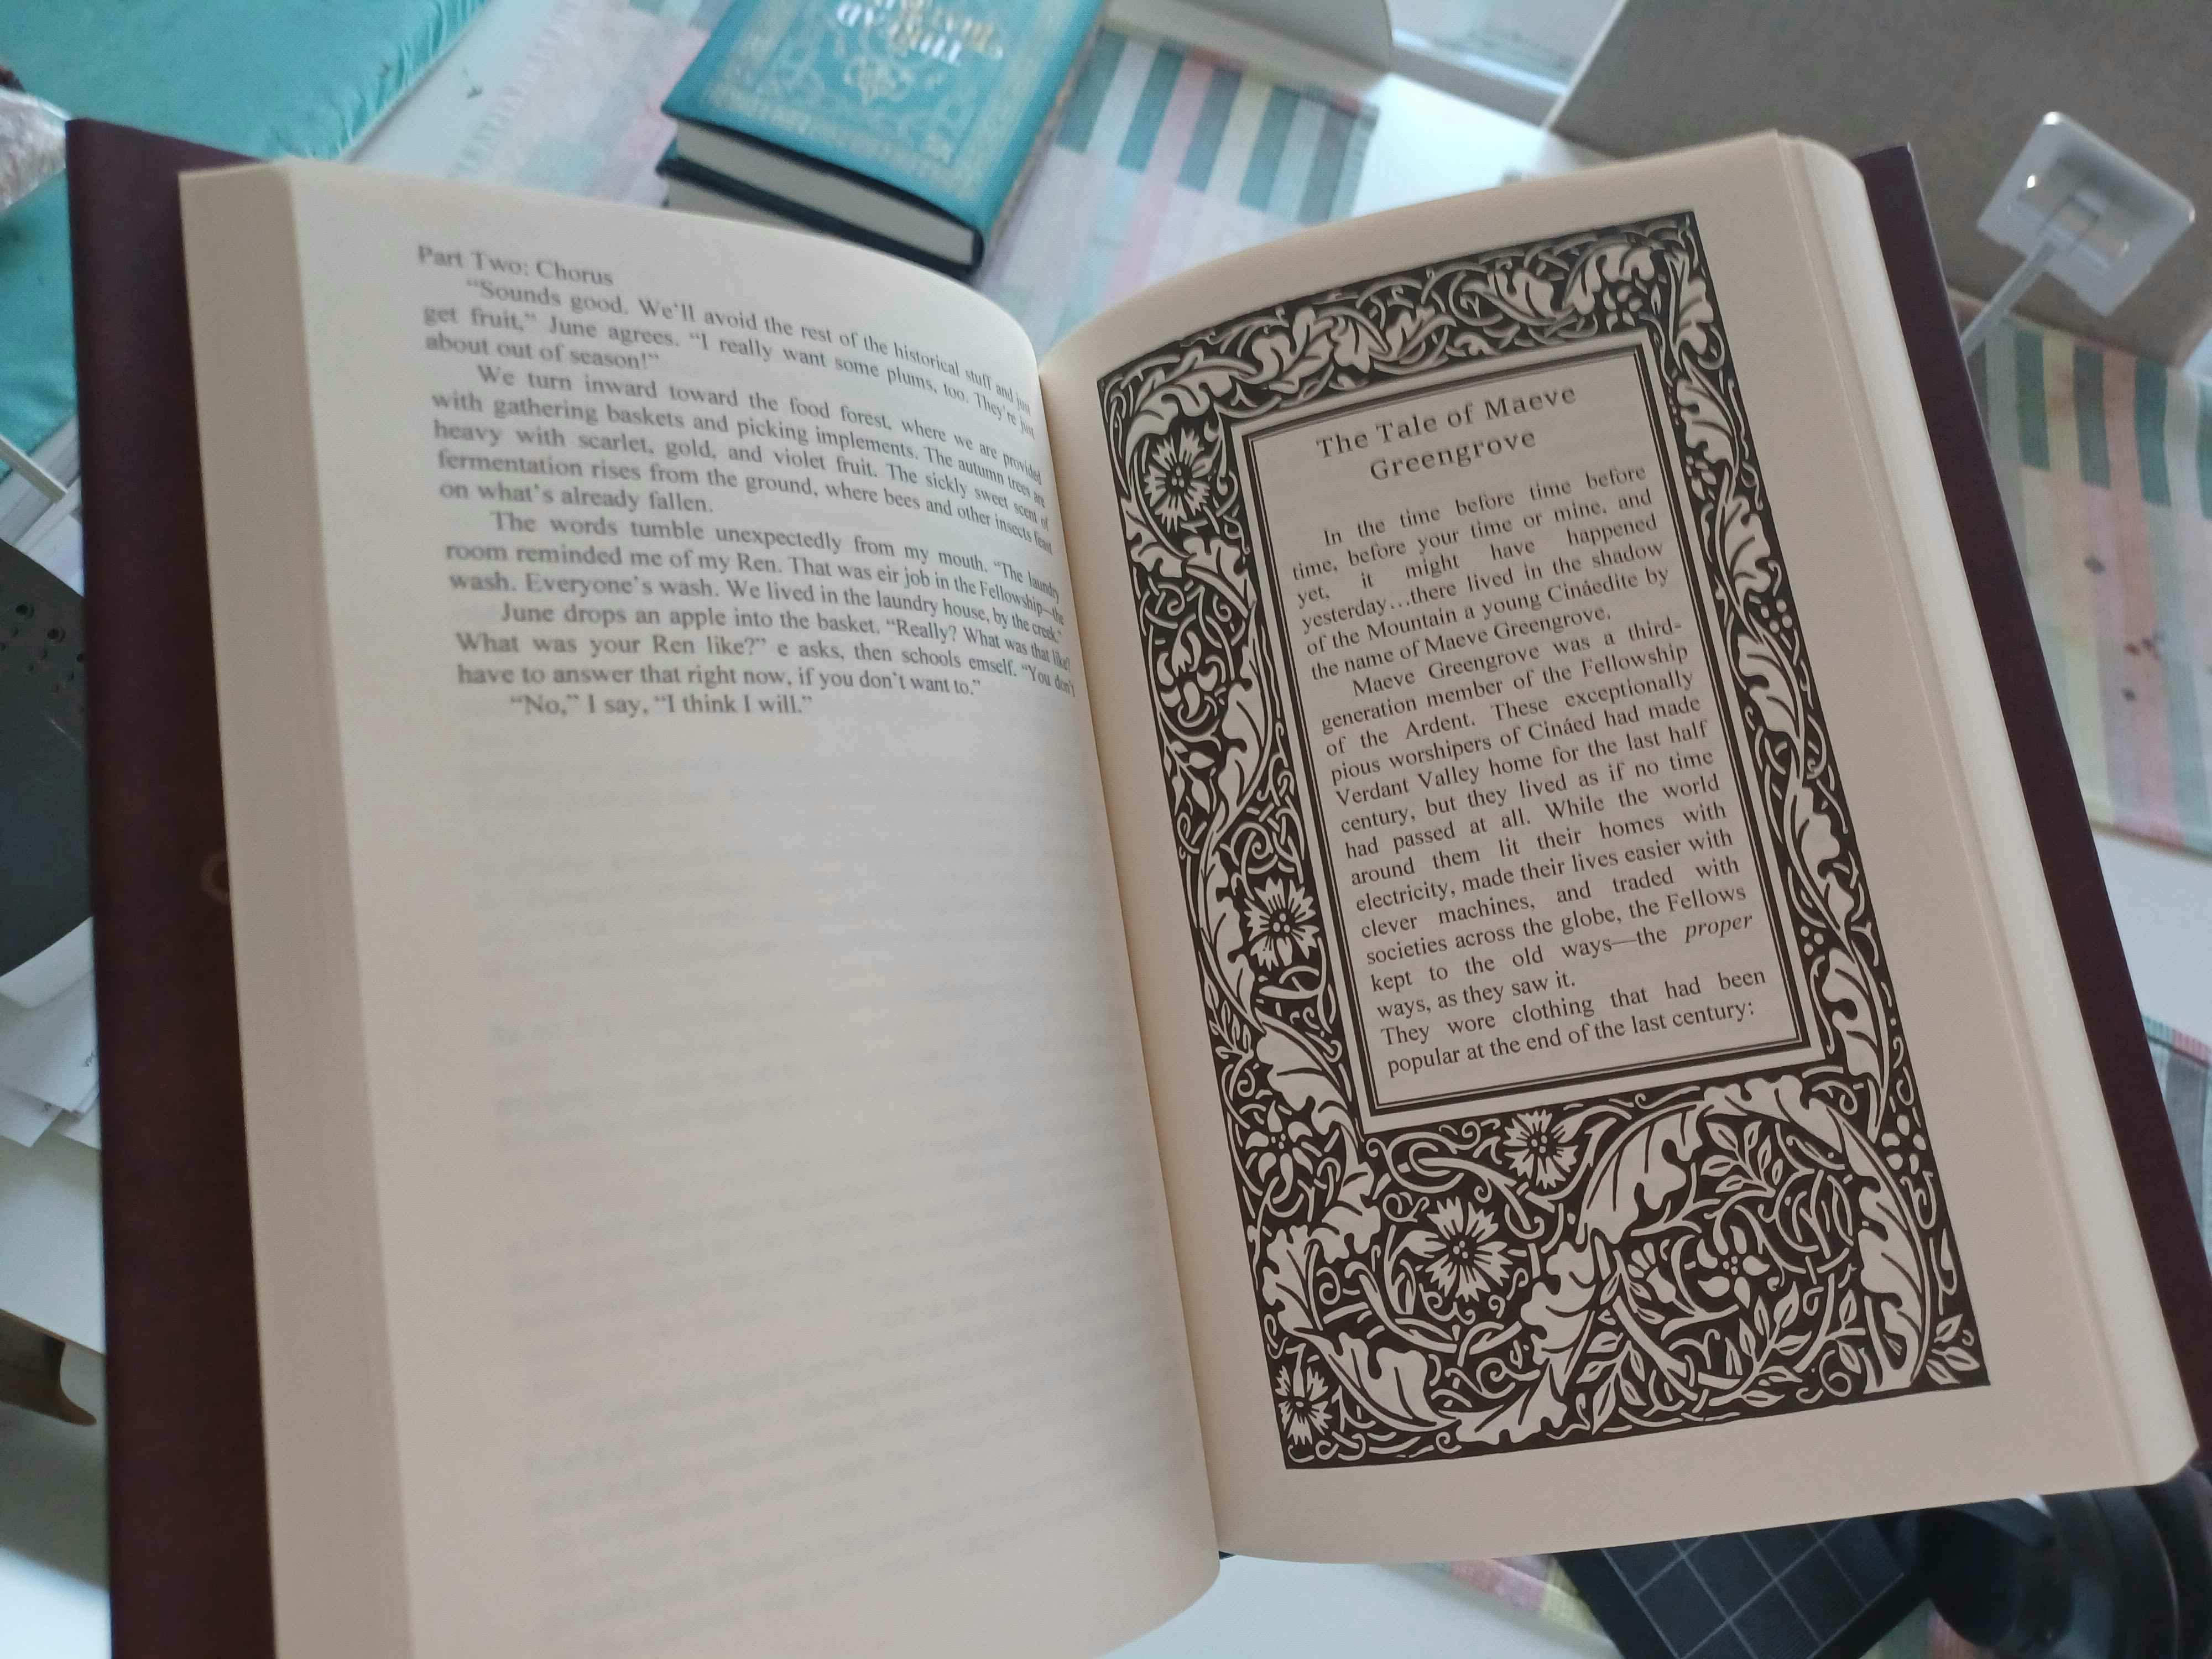 Part Two: Chorus
“Sounds good. We’ll avoid the rest of the historical stuff and just
get fruit,” June agrees. “I really want some plums, too. They’re just
about out of season!”
We turn inward toward the food forest, where we are provided
with gathering baskets and picking implements. The autumn trees are
heavy with scarlet, gold, and violet fruit. The sickly sweet scent of
fermentation rises from the ground, where bees and other insects feast
on what’s already fallen.
The words tumble unexpectedly from my mouth. “The laundry
room reminded me of my Ren. That was eir job in the Fellowship—the
wash. Everyone’s wash. We lived in the laundry house, by the creek.”
June drops an apple into the basket. “Really? What was that like?
What was your Ren like?” e asks, then schools emself. “You don’t
have to answer that right now, if you don’t want to.”
“No,” I say, “I think I will.”
The Tale of Maeve
Greengrove
In the time before time before
time, before your time or mine, and
yet, it might have happened
yesterday…there lived in the shadow
of the Mountain a young Cináedite by
the name of Maeve Greengrove.
Maeve Greengrove was a third-
generation member of the Fellowship
of the Ardent. These exceptionally
pious worshipers of Cináed had made
Verdant Valley home for the last half
century, but they lived as if no time
had passed at all. While the world
around them lit their homes with
electricity, made their lives easier with
clever machines, and traded with
societies across the globe, the Fellows
kept to the old ways—the proper
ways, as they saw it.
They wore clothing that had been
popular at the end of the last century: